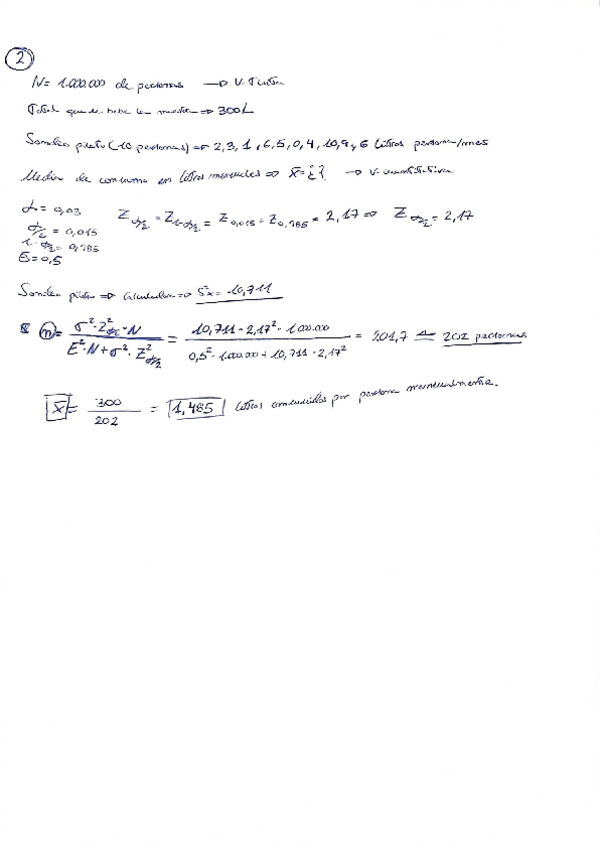 2
N = 1.000.000 de personas → V. Finita
Total que se bebe la muestra ⇒ 300L
Sondeo piloto (10 personas) ⇒ 2, 3, 1, 6, 5, 0, 4, 10, 9 y 6 litros persona/mes
Media de consumo en litros mensuales ⇒ x̄ = ¿? → V. cuantitativa
α = 0,03
α/2 = 0,015
1-α/2 = 0,985
Z α/2 = Z 1-α/2 = Z 0,015 = Z 0,985 = 2,17 ⇒ Z α/2 = 2,17
E = 0,5
Sondeo piloto ⇒ Calculadora ⇒ S²x = 10,711
n = σ²·Z²α/2·N / E²·N + σ²·Z²α/2 = 10,711 · 2,17² · 1.000.000 / 0,5² · 1.000.000 + 10,711 · 2,17² = 201,7 ≃ 202 personas
x̄ = 300 / 202 = 1,485 litros consumidos por persona mensualmente.